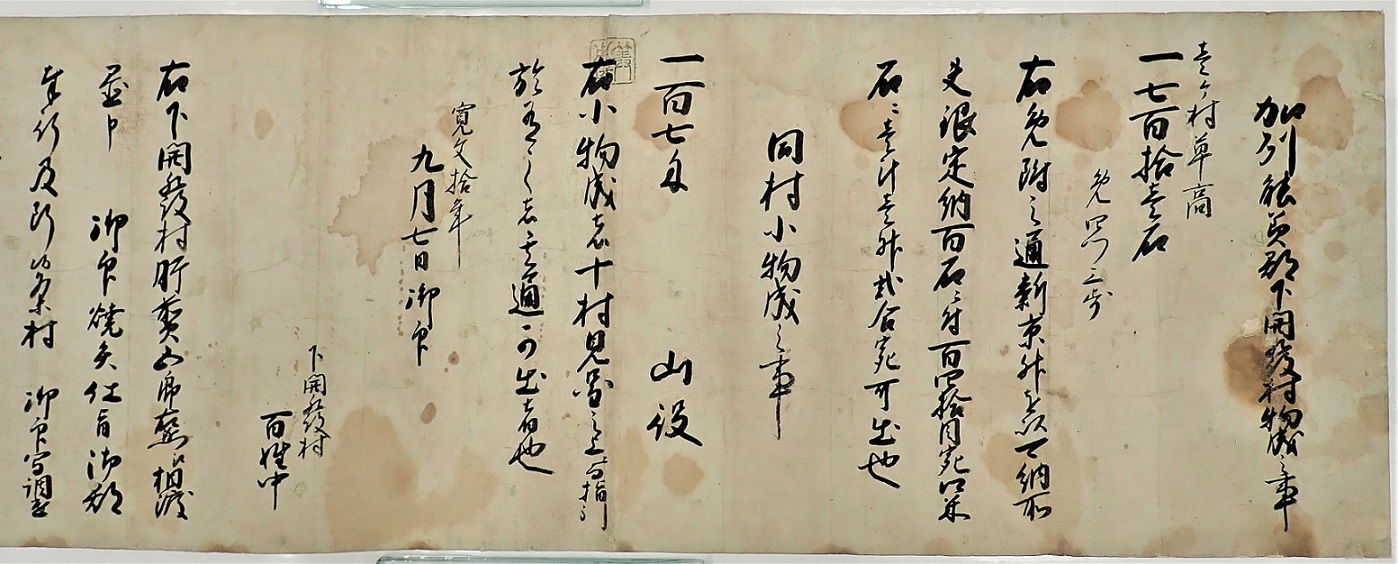 加州能美郡下開發村物成之事
壱ヶ村草高
一七百拾壱石
免四ツ三歩
右免附之通新京舛之致可納所
夫銀定納百石ニ付百四拾目宛口米
石ニ壱斗壱舛弐合宛可出也
同村小物成之事
一百七匁 山役
右小物成者十村見図之上ニ而指引
於有之者其通可出者也
寛文拾年
九月七日 御印
下開發村
百姓中
右下開發村肝煎 相渡
置申 御印焼失仕旨御郡
奉行及 村 御印写調